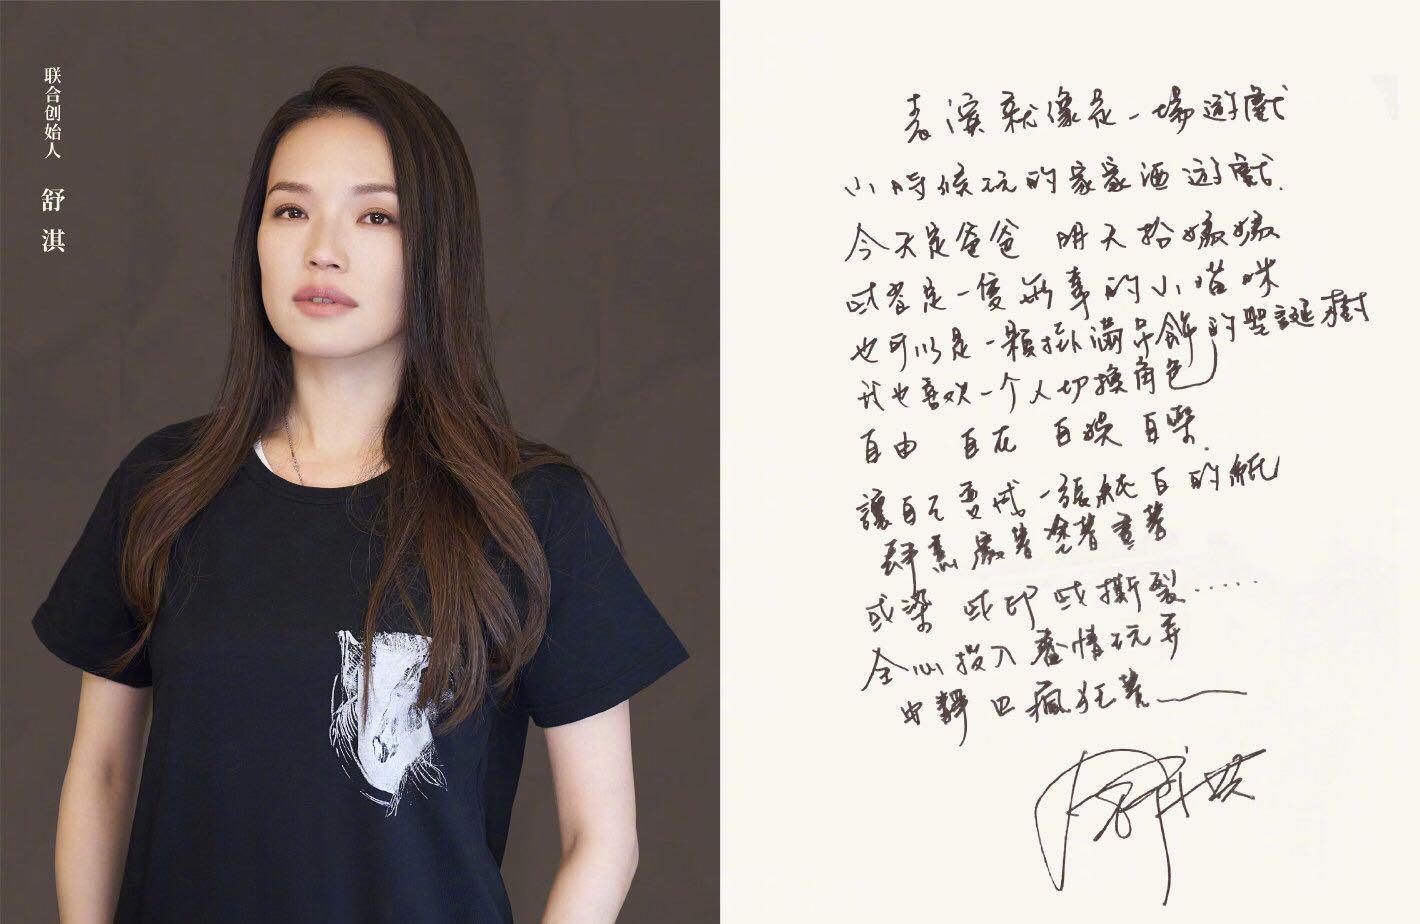 联合创始人 舒淇
表演就像是一場遊戲
小時候玩的家家酒遊戲.
今天是爸爸 明天抬嫩嫩
或者是一隻無辜的小喵咪
也可以是一顆掛滿吊飾的聖誕樹
我也喜欢一个人切換角色
自由 自在 自娛自樂.
讓自己變成一張純白的紙
肆意寫著塗著畫著
或染 或印 或撕裂......
全心投入 盡情玩弄
安靜且瘋狂著
舒淇